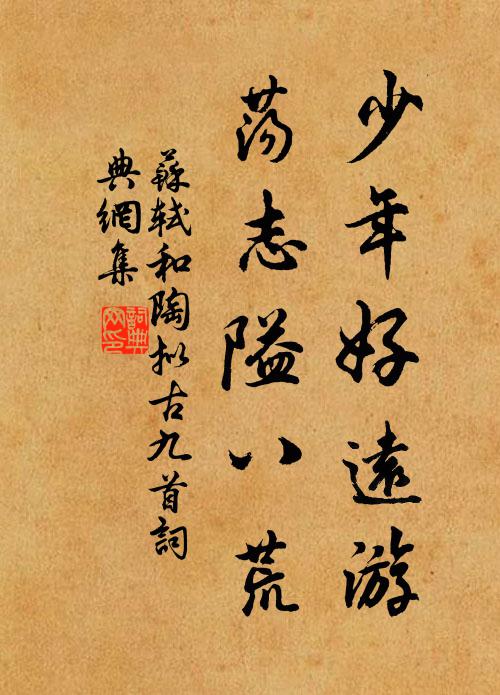 少年好遠游
蕩志隘八荒
蘇軾和陶拟古九首詞
典網集
詞典
网印